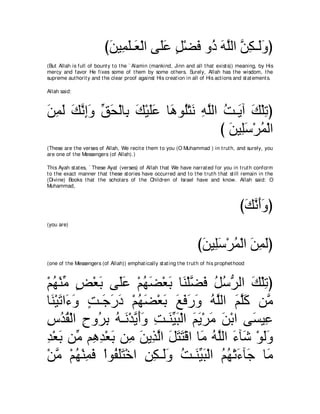 (وَلَـكِنَّ اللَّهَ ذُو فَضْلٍ عَلَى الْعَـلَمِينَ)
(But Allah is full of bounty to the `Alamin (mankind, Jinn and all that exists)) meaning, by His
mercy and favor He fixes some of them by some others. Surely, Allah has the wisdom, the
supreme authority and the clear proof against His creation in all of His actions and statements.
Allah said:
تِلْكَ آيَـتُ اللَّهِ نَتْلُوهَا عَلَيْكَ بِالْحَقِّ وَإِنَّكَ لَمِنَ
الْمُرْسَلِينَ )
(These are the verses of Allah, We recite them to you (O Muhammad ) in truth, and surely, you
are one of the Messengers (of Allah).)
This Ayah states, `These Ayat (verses) of Allah that We have narrated for you in truth conform
to the exact manner that these stories have occurred and to the truth that still remain in the
(Divine) Books that the scholars of the Children of Israel have and know. Allah said: O
Muhammad,
(وَأَنَّكَ)
(you are)
(لَمِنَ الْمُرْسَلِينَ)
(one of the Messengers (of Allah)) emphatically stating the truth of his prophethood
(تِلْكَ الرُّسُلُ فَضَّلْنَا بَعْضَهُمْ عَلَى بَعْضٍ مِّنْهُمْ
مَّن كَلَّمَ اللَّهُ وَرَفَعَ بَعْضَهُمْ دَرَجَـتٍ وَءَاتَيْنَا
عِيسَى ابْنَ مَرْيَمَ الْبَيِّنَـتِ وَأَيَّدْنَـهُ بِرُوحِ الْقُدُسِ
وَلَوْ شَآءَ اللَّهُ مَا اقْتَتَلَ الَّذِينَ مِن بَعْدِهِم مِّن بَعْدِ
مَا جَآءَتْهُمُ الْبَيِّنَـتُ وَلَـكِنِ اخْتَلَفُواْ فَمِنْهُمْ مَّنْ